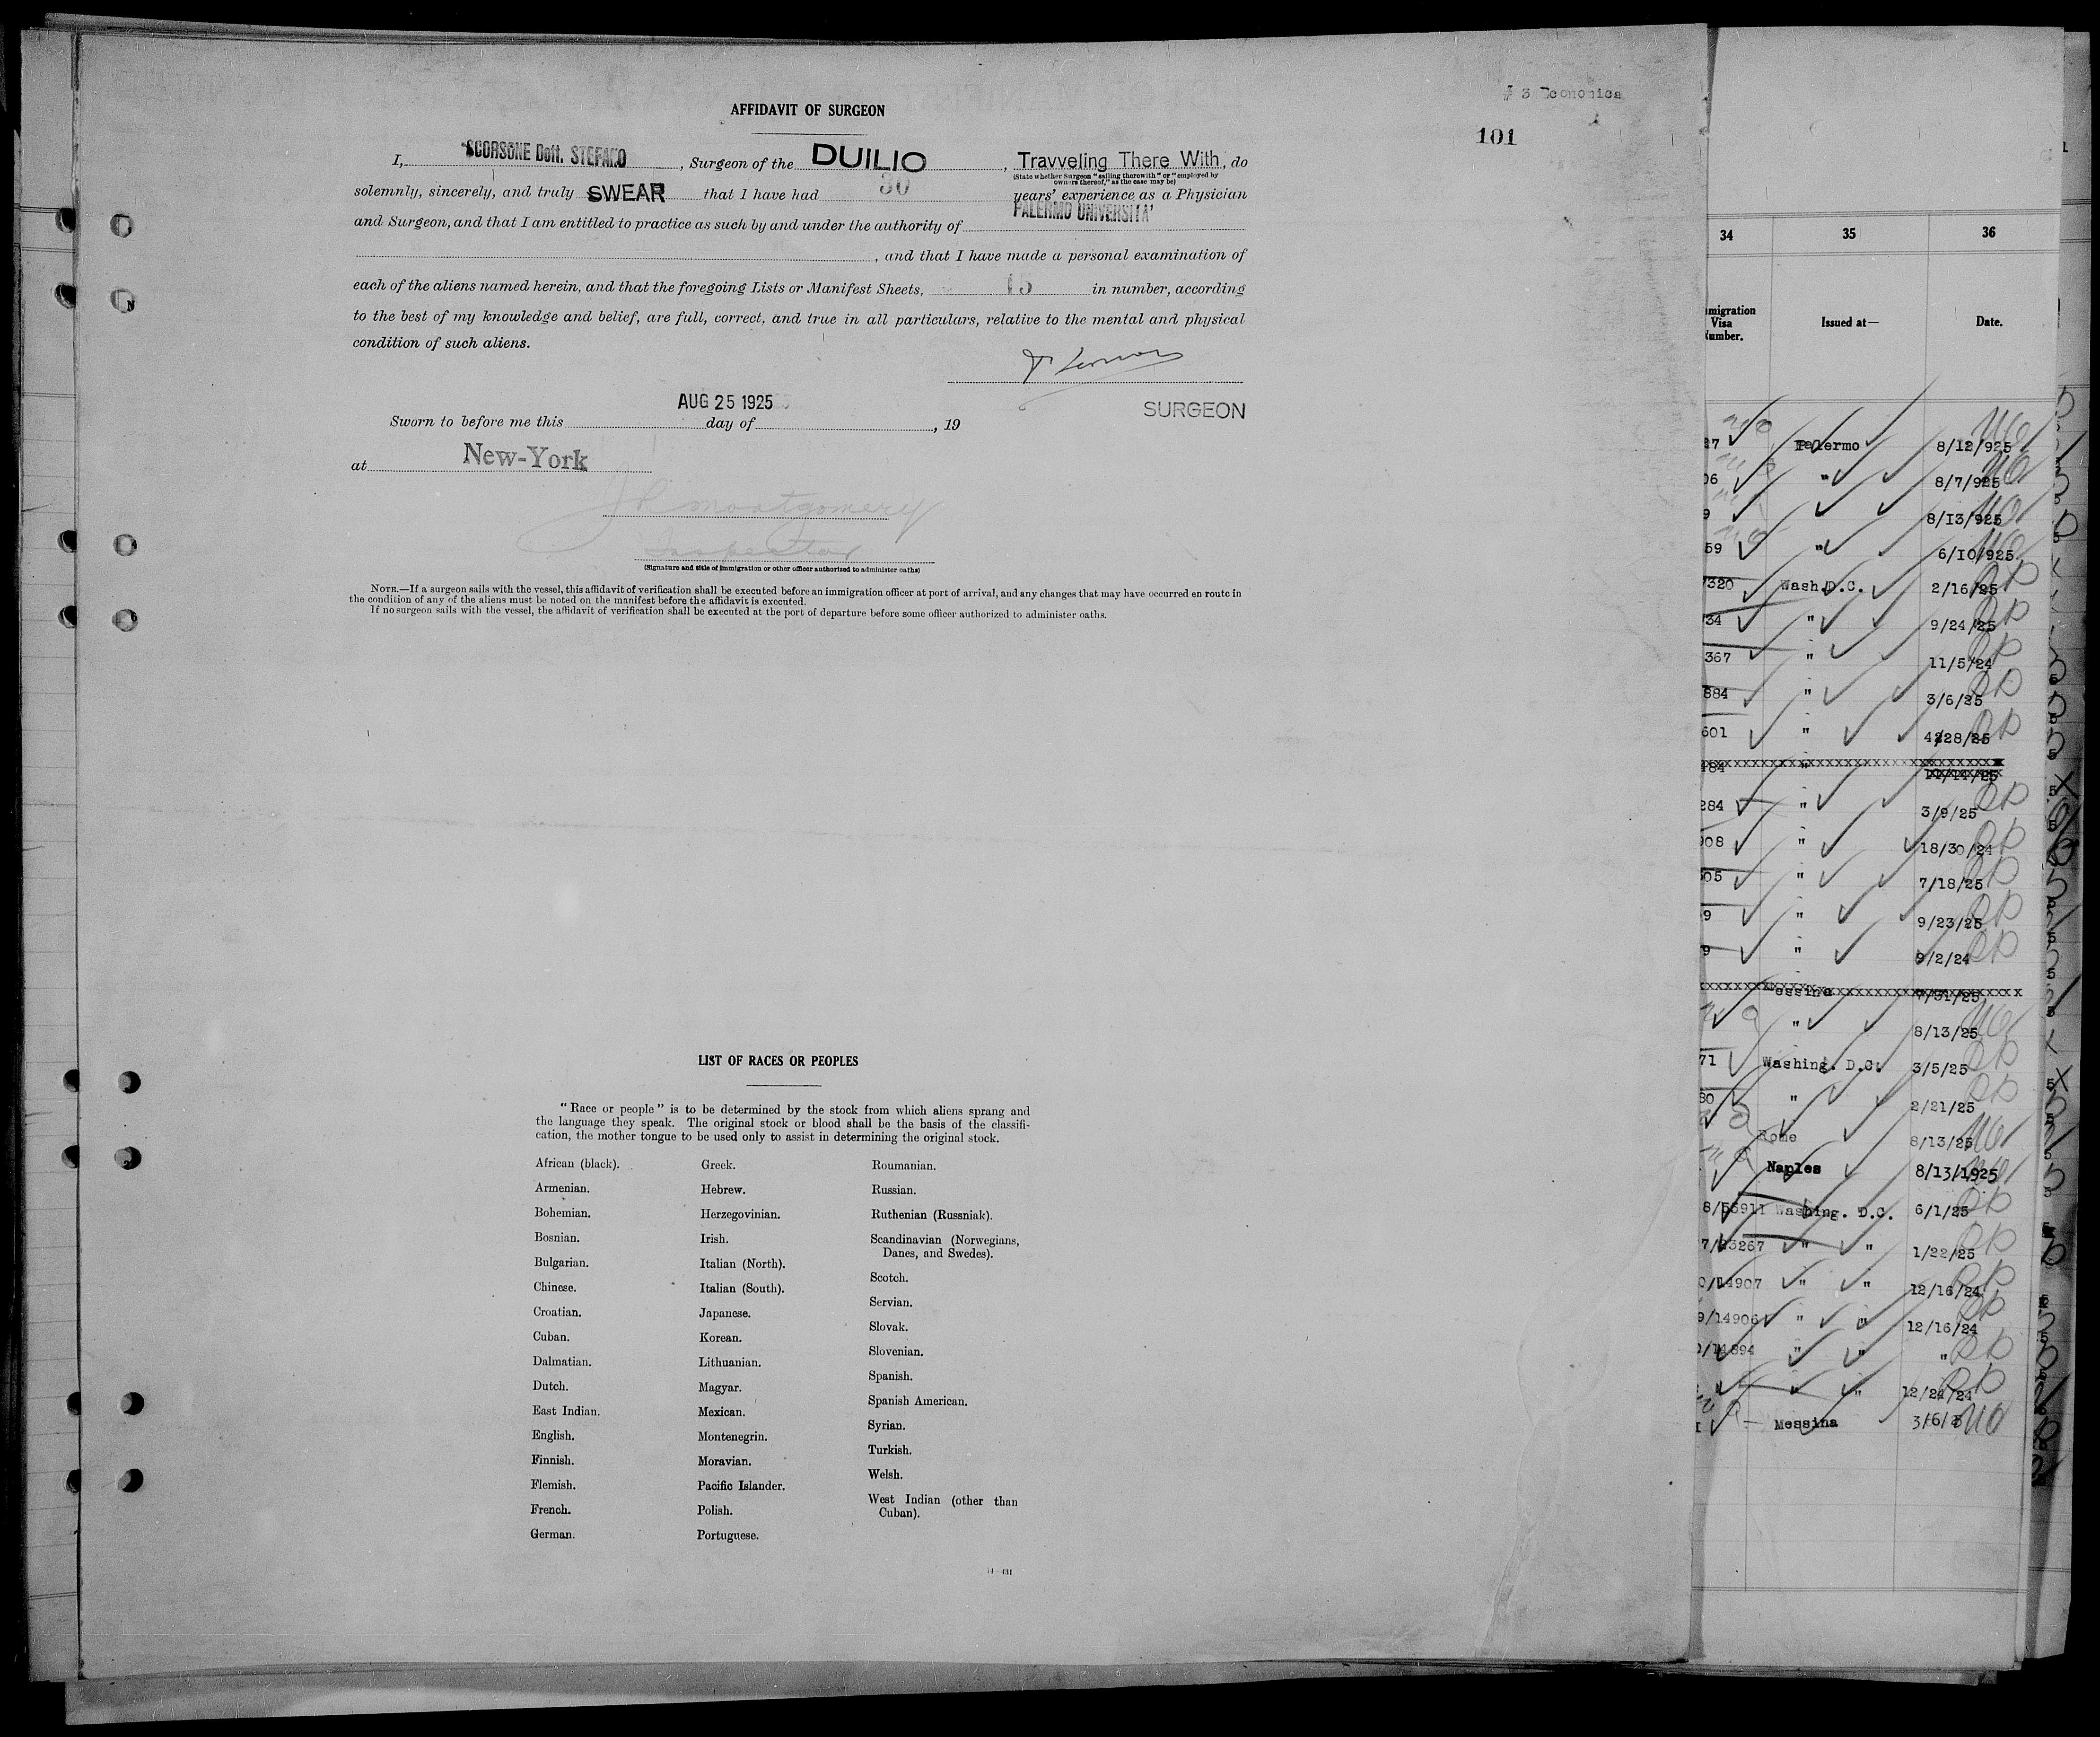 # 3 Economica
101
AFFIDAVIT OF SURGEON
I, SCORSONE Dott. STEFANO, Surgeon of the DUILIO, Travveling There With, do
(State whether Surgeon "sailing therewith" or "employed by
owners thereof," as the case may be)
solemnly, sincerely, and truly SWEAR that I have had 30 years' experience as a Physician
PALERMO UNIVERSITA'
and Surgeon, and that I am entitled to practice as such by and under the authority of
, and that I have made a personal examination of
each of the aliens named herein, and that the foregoing Lists or Manifest Sheets, 15 in number, according
to the best of my knowledge and belief, are full, correct, and true in all particulars, relative to the mental and physical
condition of such aliens.
AUG 25 1925
SURGEON
Sworn to before me this day of , 19
at New-York
J R Montgomery
Inspector
(Signature and title of immigration or other officer authorized to administer oaths)
NOTE.—If a surgeon sails with the vessel, this affidavit of verification shall be executed before an immigration officer at port of arrival, and any changes that may have occurred en route in
the condition of any of the aliens must be noted on the manifest before the affidavit is executed.
If no surgeon sails with the vessel, the affidavit of verification shall be executed at the port of departure before some officer authorized to administer oaths.
LIST OF RACES OR PEOPLES
"Race or people" is to be determined by the stock from which aliens sprang and
the language they speak. The original stock or blood shall be the basis of the classifi-
cation, the mother tongue to be used only to assist in determining the original stock.
African (black).
Armenian.
Bohemian.
Bosnian.
Bulgarian.
Chinese.
Croatian.
Cuban.
Dalmatian.
Dutch.
East Indian.
English.
Finnish.
Flemish.
French.
German.
Greek.
Hebrew.
Herzegovinian.
Irish.
Italian (North).
Italian (South).
Japanese.
Korean.
Lithuanian.
Magyar.
Mexican.
Montenegrin.
Moravian.
Pacific Islander.
Polish.
Portuguese.
Roumanian.
Russian.
Ruthenian (Russniak).
Scandinavian (Norwegians,
Danes, and Swedes).
Scotch.
Servian.
Slovak.
Slovenian.
Spanish.
Spanish American.
Syrian.
Turkish.
Welsh.
West Indian (other than
Cuban).
34 35 36
migration
Visa
Number.
Issued at—
Date.
27 Palermo 8/12/925
06 " 8/7/925
9 8/13/925
59 " 6/10/925
7320 Wash.D.C. 2/16/25
734 " 9/24/25
367 " 11/5/24
884 " 3/6/25
601 " 4/28/25
484 "
284 " 3/9/25
908 " 18/30/24
505 " 7/18/25
9 " 9/23/25
9 " 9/2/24
Messina 7/31/25
" 8/13/25
71 Washing. D.C. 3/5/25
80 " 2/21/25
Rome 8/13/25
Naples 8/13/1925
8/55911 Washing. D.C. 6/1/25
7/13267 " " 1/22/25
0/14907 " " 12/16/24
9/14906 " " 12/16/24
0/14894 " " "
" 12/24/24
Messina 3/6/